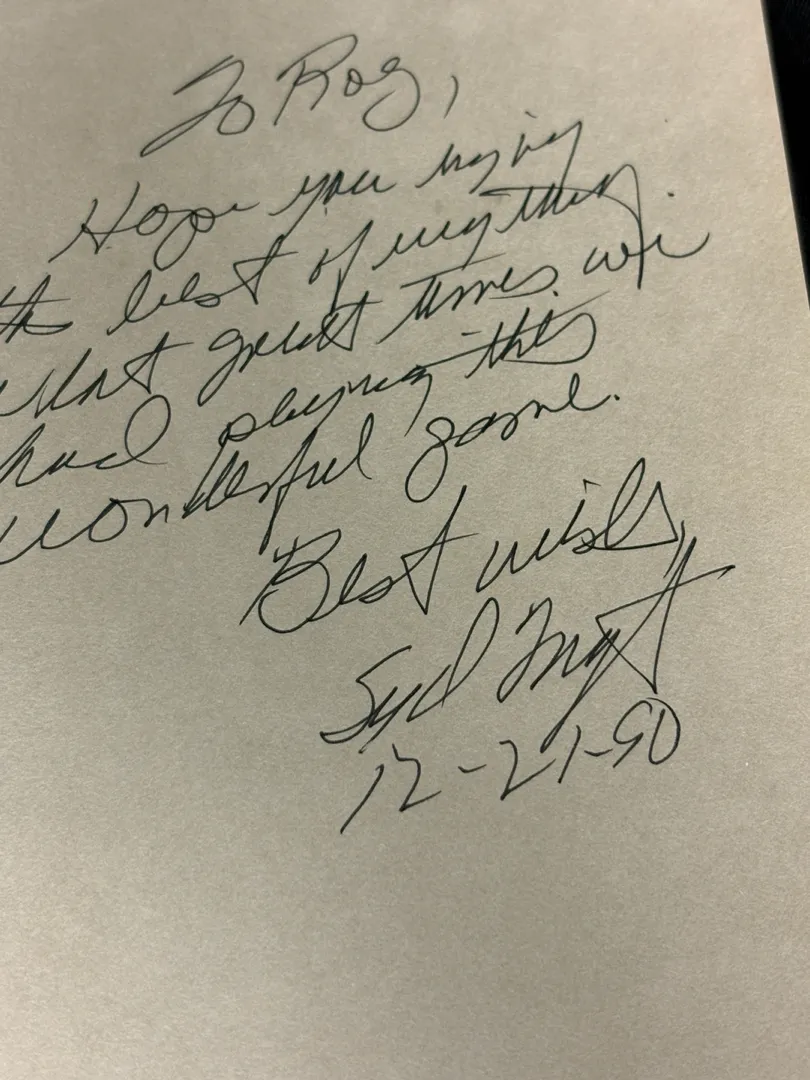 To Roy,
Hope you enjoy
the best of everything.
What great times we
had playing this
wonderful game.
Best wishes,
Syd
12-21-90